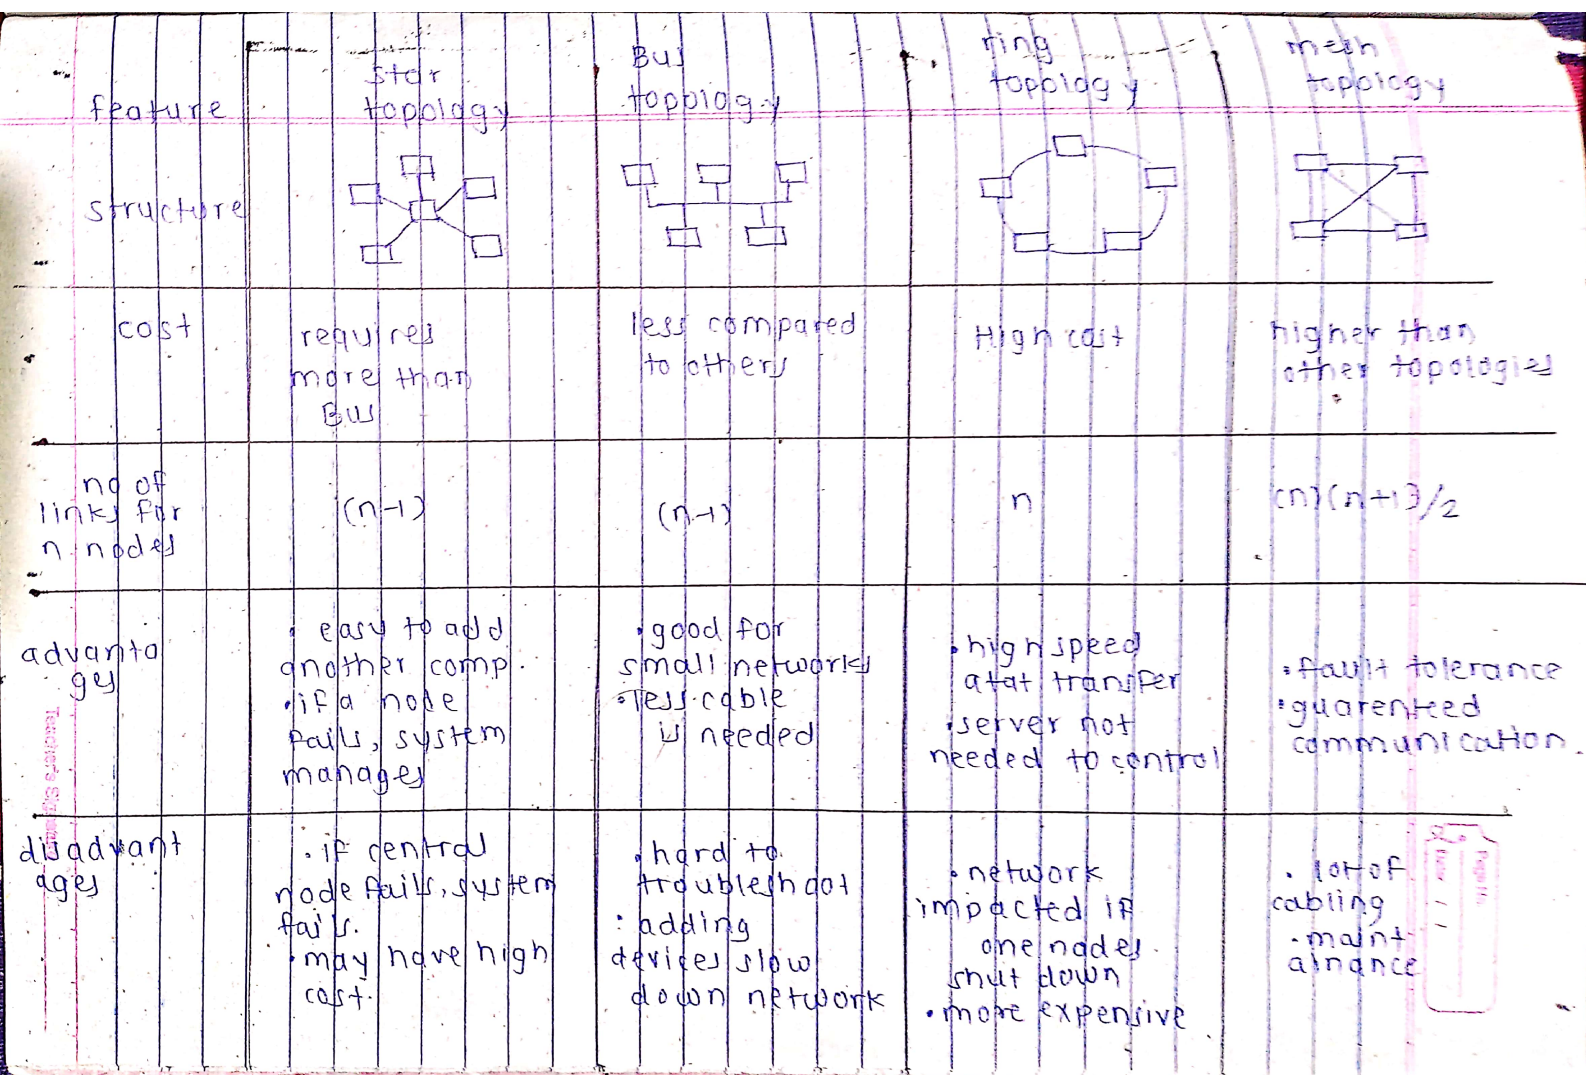 feature
star
topology
Bus
topology
ring
topology
mesh
topology
structure
cost
requires
more than
Bus
less compared
to others
High cost
higher than
other topologies
no of
links for
n nodes
(n-1)
(n-1)
n
(n)(n+1)/2
advanta
ges
• easy to add
another comp.
• if a node
fails, system
manages
• good for
small networks
• less cable
is needed
• high speed
atat transfer
• server not
needed to control
• fault tolerance
• guarenteed
communication.
disadvant
ages
• if central
node fails, system
fails.
• may have high
cost.
• hard to
troubleshoot
• adding
devices slow
down network
• network
impacted if
one nodes
shut down
• more expensive
• lot of
cabling
• maint
ainance
Teacher's